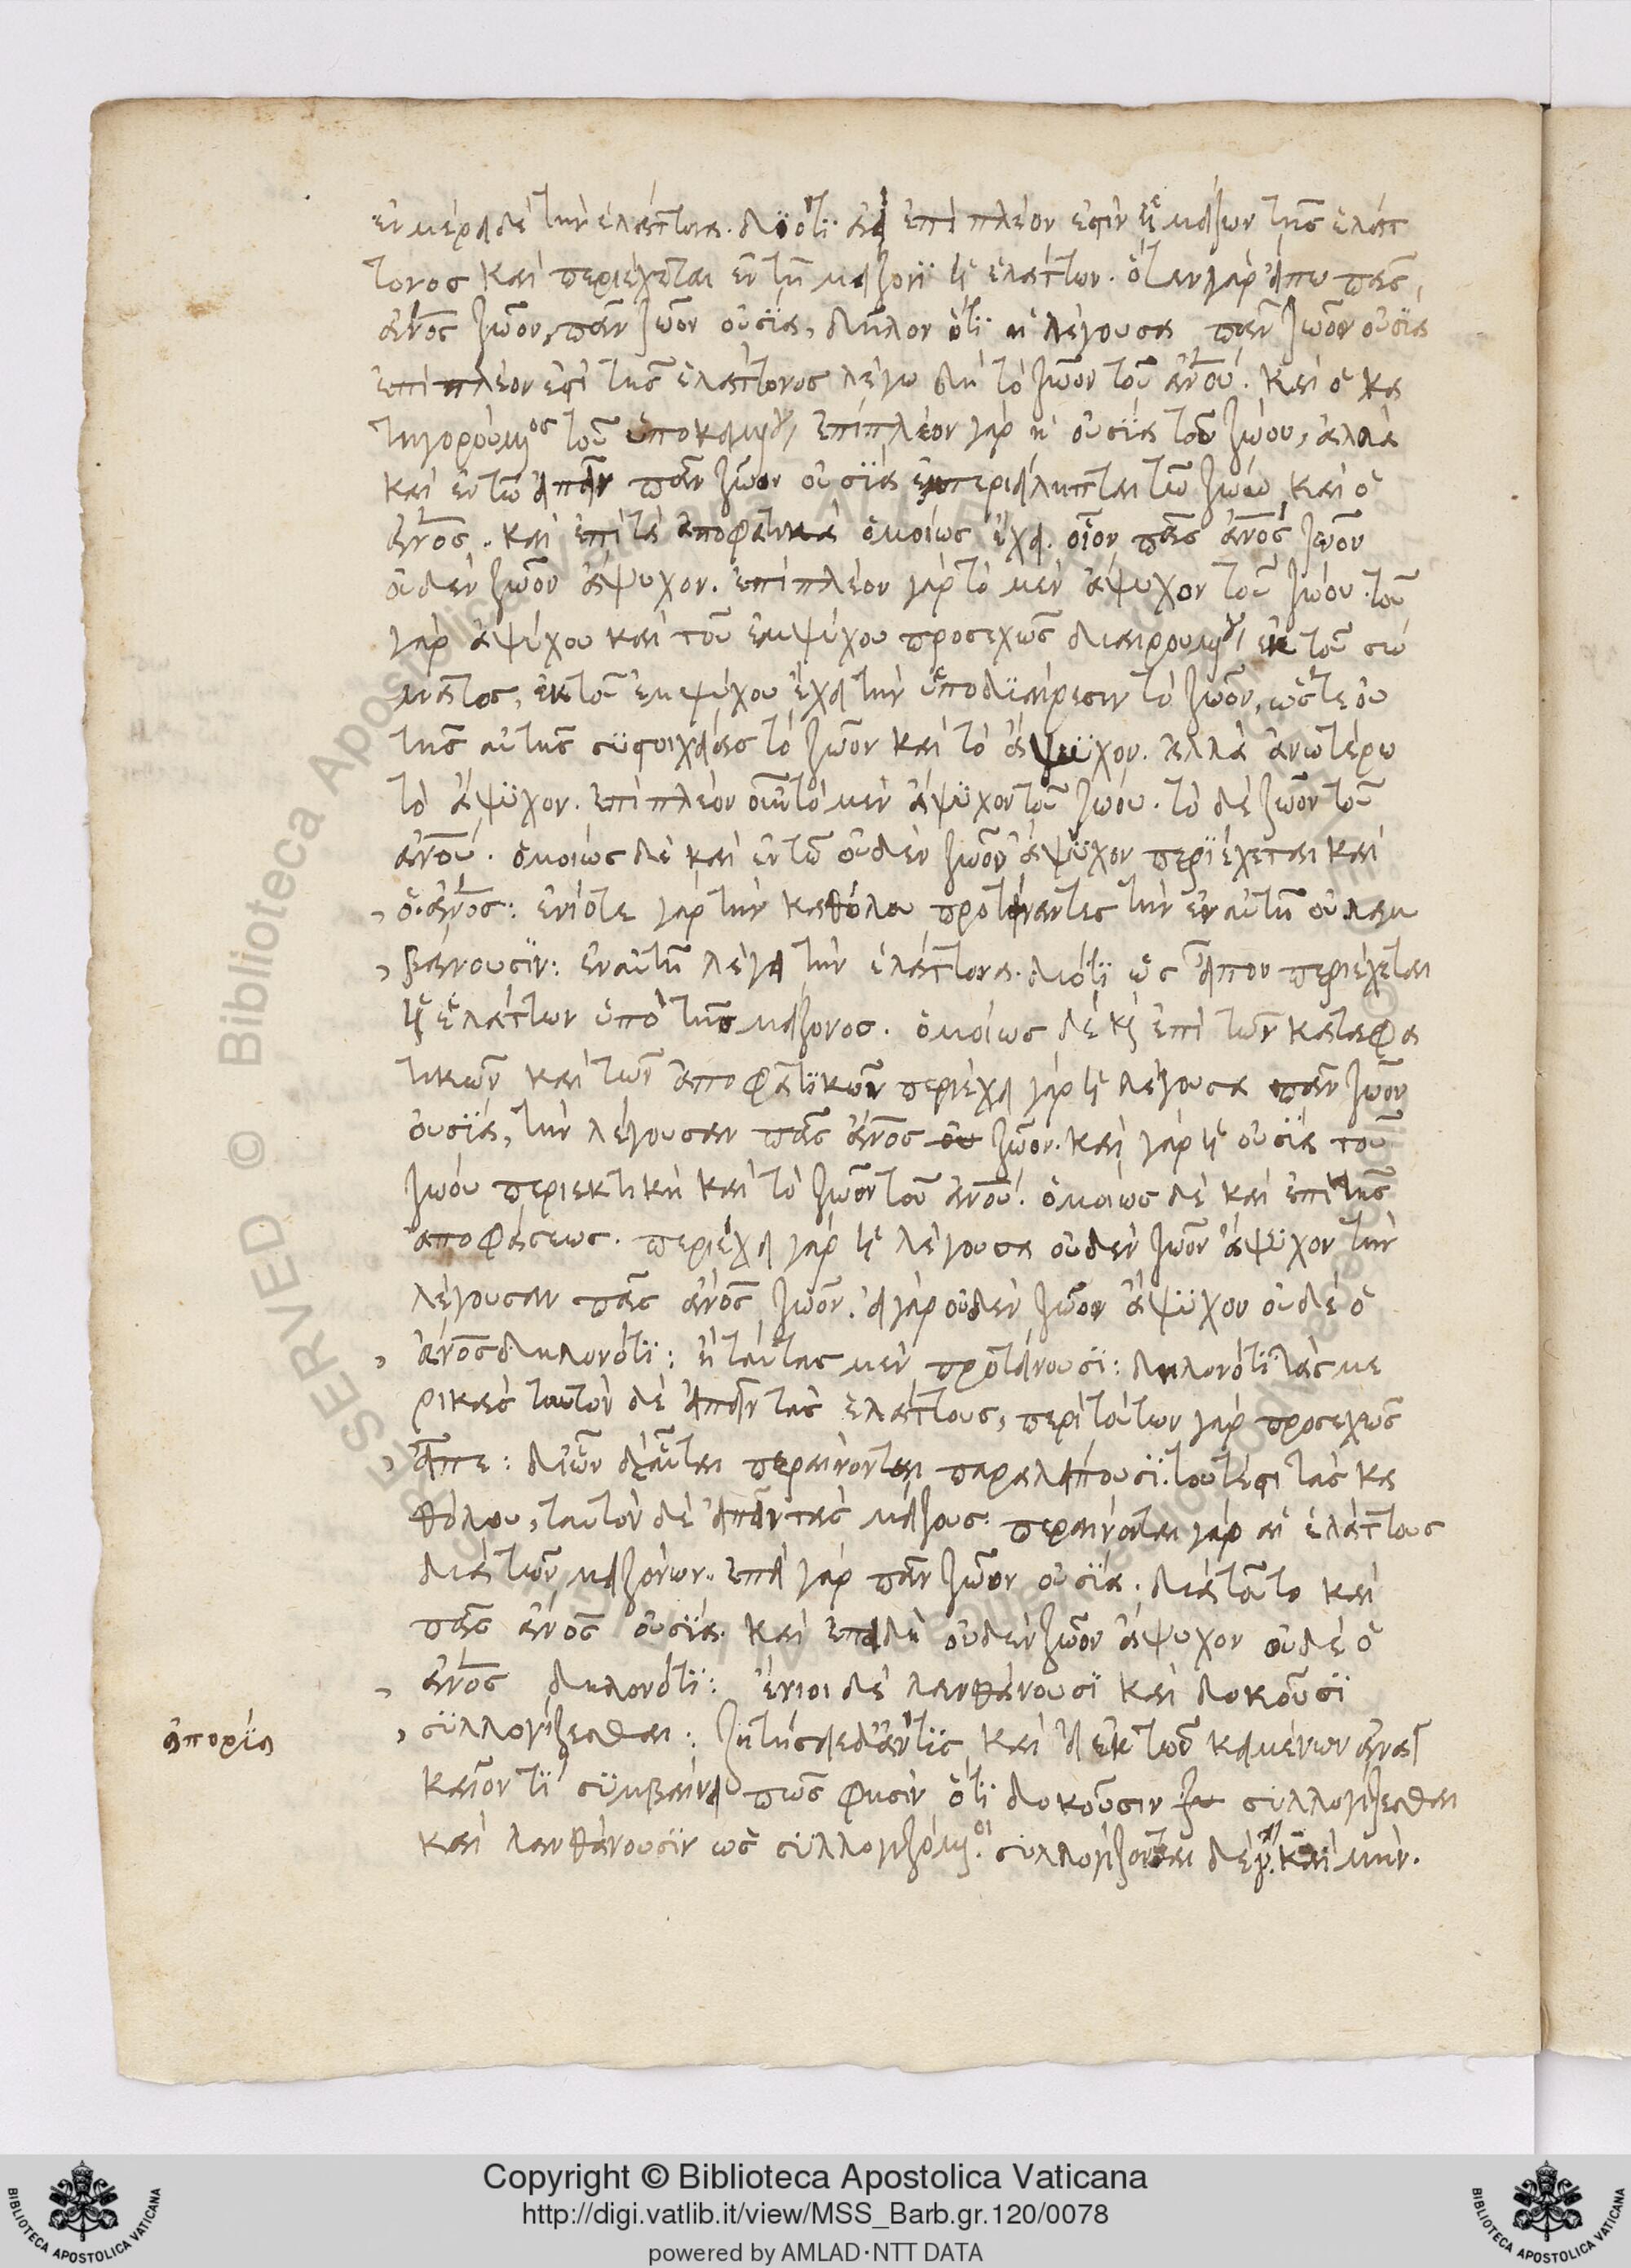 ἐν μέρει δὲ τὴν ἐλάττονα. διότι ἀεὶ ἐπὶ πλέον ἐστὶν ἡ μείζων τῆς ἐλάτ
τονος καὶ περιέχεται ἐν τῇ μείζονι ἡ ἐλάττων. ὅταν γὰρ εἴπω πᾶς
ἄνος ζῶον, πᾶν ζῶον οὐσία, δῆλον ὅτι ἡ λέγουσα πᾶν ζῶον οὐσία
ἐπὶ πλέον ἐστὶ τῆς ἐλάττονος λέγω δὴ τὸ ζῶον τοῦ ἀνου. καὶ ὁ κα
τηγορούμενος τοῦ ὑποκειμένου, ἐπὶ πλέον γὰρ ἡ οὐσία τοῦ ζώου, ἀλλὰ
καὶ ἐν τῷ εἰπεῖν πᾶν ζῶον οὐσία ἐμπεριείληπται τῷ ζώω καὶ ὁ
ἄνος. καὶ ἐπὶ τὰ ἀποφατικὰ ὁμοίως ἔχει. οἷον πᾶς ἄνος ζῶον
οὐδὲν ζῶον ἄψυχον. ἐπὶ πλέον γὰρ τὸ μὲν ἄψυχον τοῦ ζώου. τοῦ
γὰρ ἀψύχου καὶ τοῦ ἐμψύχου προσεχῶς διαιρουμένου ἐκ τοῦ σώ
ματος, ἐκ τοῦ ἐμψύχου ἔχει τὴν ὑποδιαίρεσιν τὸ ζῶον, ὥστε οὐ
τῆς αὐτῆς συστοιχείας τὸ ζῶον καὶ τὸ ἄψυχον. ἀλλὰ ἀνωτέρω
τὸ ἄψυχον. ἐπὶ πλέον οὖν τὸ μὲν ἄψυχον τοῦ ζώου. τὸ δὲ ζῶον τοῦ
ἀνου. ὁμοίως δὲ καὶ ἐν τῷ οὐδὲν ζῶον ἄψυχον περιέχεται καὶ
ὁ ἄνος: ἐνίοτε γὰρ τὴν καθόλου προτείναντες τὴν ἐν αὐτῇ οὐ λαμ
βάνουσιν: ἐν αὐτῇ λέγει τὴν ἐλάττονα. διότι ὡς εἶπον περιέχεται
ἡ ἐλάττων ὑπὸ τῆς μείζονος. ὁμοίως δὲ κ ἐπὶ τῶν καταφα
τικῶν καὶ τῶν ἀποφατικῶν περιέχει γὰρ ἡ λέγουσα πᾶν ζῶον
οὐσία, τὴν λέγουσαν πᾶς ἄνος ζῶον. καὶ γὰρ ἡ οὐσία τοῦ
ζώου περιεκτικὴ καὶ τὸ ζῶον τοῦ ἀνου. ὁμοίως δὲ καὶ ἐπὶ τῆς
ἀποφάσεως. περιέχει γὰρ ἡ λέγουσα οὐδὲν ζῶον ἄψυχον τὴν
λέγουσαν πᾶς ἄνος ζῶον. εἰ γὰρ οὐδὲν ζῶον ἄψυχον οὐδὲ ὁ
ἄνος δηλονότι: ἢ ταύτας μὲν προτείνουσι: δηλονότι τὰς με
ρικὰς ταυτὸν δὲ εἰπεῖν τὰς ἐλάττους, περὶ τούτων γὰρ προσεχῶς
εἶπε: δι' ὧν δ' αὗται περαίνονται παραλείπουσι. τουτέστι τὰς κα
θόλου, ταυτὸν δὲ εἰπεῖν τὰς μείζους. περαίνονται γὰρ αἱ ἐλάττους
διὰ τῶν μειζόνων. ἐπεὶ γὰρ πᾶν ζῶον οὐσία. διὰ τοῦτο καὶ
πᾶς ἄνος οὐσία. καὶ ἐπειδὴ οὐδὲν ζῶον ἄψυχον οὐδὲ ὁ
ἄνος δηλονότι: ἔνιοι δὲ λανθάνουσι καὶ δοκοῦσι
συλλογίζεσθαι: ζητήσειε δ' ἄν τις καὶ εἰ ἐκ τῶν κειμένων ἀναγ
καῖον τι συμβαίνει πῶς φησιν ὅτι δοκοῦσιν συλλογίζεσθαι
καὶ λανθάνουσιν ὡς συλλογιζόμενοι. συλλογίζονται δὲ καὶ μήν.
ἀπορία
Copyright © Biblioteca Apostolica Vaticana
http://digi.vatlib.it/view/MSS_Barb.gr.120/0078
powered by AMLAD·NTT DATA